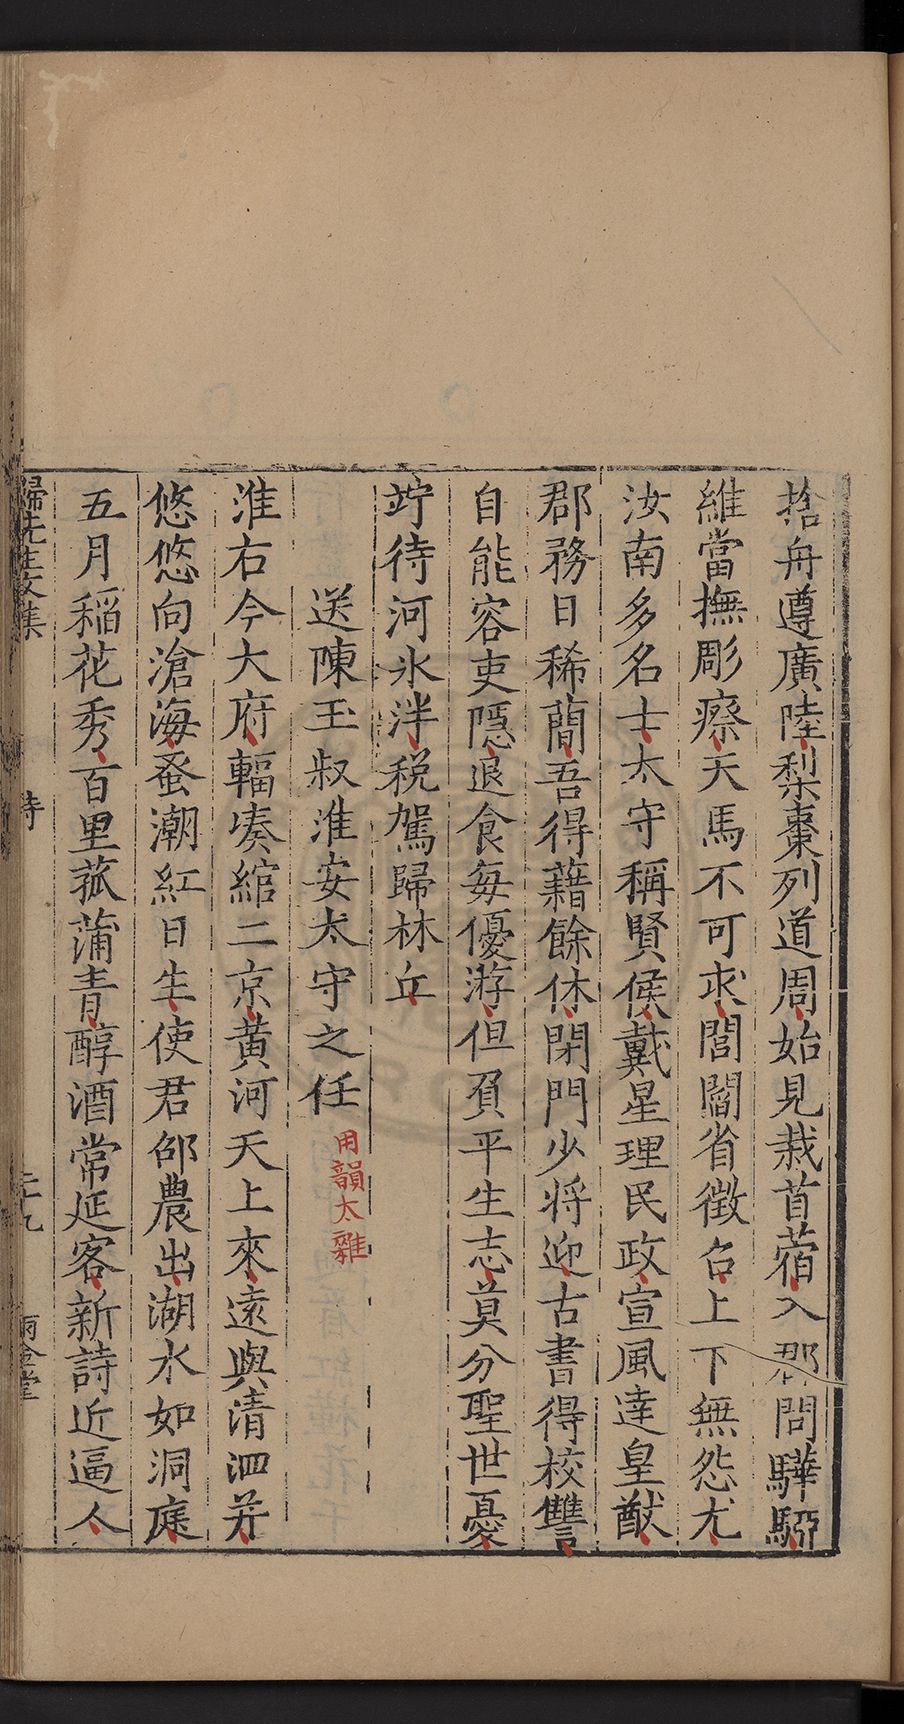 捨舟遵廣陸梨棗列道周始見栽首蓿入郡問驊騮
維當撫彫瘵天馬不可求閭閻省徵召上下無怨尤
汝南多名士太守稱賢侯戴星理民政宣風達皇猷
郡務日稀簡吾得藉餘休閉門少將迎古書得校讐
自能容吏隱退食每優游但負平生志莫分聖世憂
竚待河氷泮税駕歸林丘
送陳玉叔淮安太守之任
用韻太雜
淮右今大府輻湊綰二京黄河天上來遠與清泗并
悠悠向滄海蚤潮紅日生使君邵農出湖水如洞庭
五月稻花秀百里菰蒲青醇酒常延客新詩近逼人
歸先生文集
詩
兩金堂